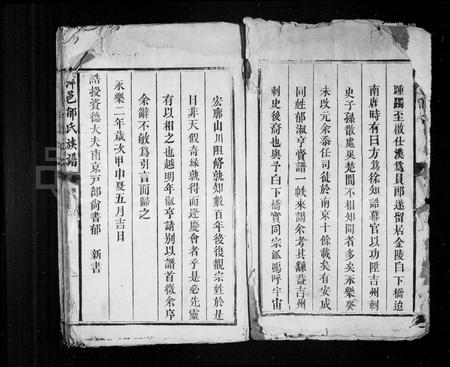 踵躅至啟仕漢為員郎遂留居金陵白下橋迨
南唐時有曰方為徐知誥幕官以功陞吉州刺
史子孫散處吳楚間不相知聞者多矣永樂癸
未改元余忝任司徒於南京十餘載矣有安成
同姓郁淑亨賫譜一帙來謁余考其繇蓋吉州
刺史後裔也與予白下橋實同宗派嗚呼宇宙
宏廓山川阻脩孰知數百年後復觀宗姓於是
日非天假奇緣孰得而逢慶會者乎是必先靈
有以相之也越明年淑亨請別以譜首徵余序
余辭不敏為引言而歸之
永樂二年歲次甲申夏五月吉日
誥授資德大夫南京戶部尚書郁 新書
邑郁氏族譜